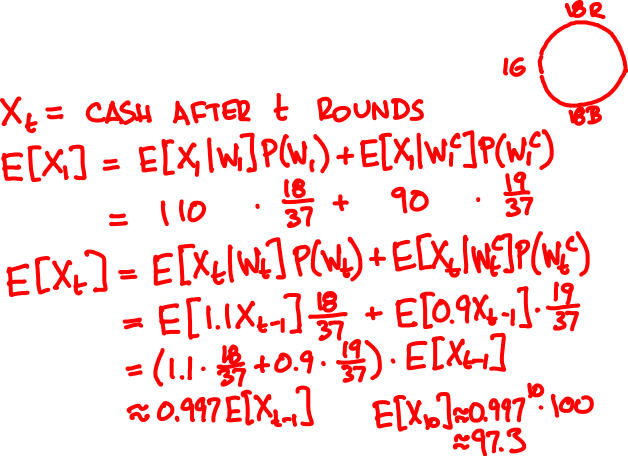 18R
1G
18B
X_t = CASH AFTER t ROUNDS
E[X_1] = E[X_1|W_1]P(W_1) + E[X_1|W_1^c]P(W_1^c)
= 110 · 18/37 + 90 · 19/37
E[X_t] = E[X_t|W_t]P(W_t) + E[X_t|W_t^c]P(W_t^c)
= E[1.1X_{t-1}] 18/37 + E[0.9X_{t-1}] · 19/37
= (1.1 · 18/37 + 0.9 · 19/37) · E[X_{t-1}]
≈ 0.997 E[X_{t-1}]
E[X_10] ≈ 0.997^10 · 100
≈ 97.3